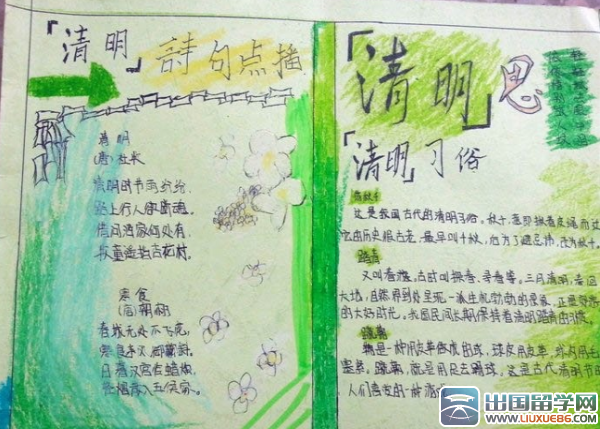 「清明」詩句点播
清明
(唐)杜牧
清明时节雨纷纷
路上行人欲断魂
借问酒家何处有
牧童遥指杏花村
寒食
春城无处不飞花
日暮汉宫
五侯家
「清明」思
「清明」习俗
荡秋千
这是我国古代的清明习俗。秋千,意即揪着皮绳而
古老,最早叫千秋,后为了避忌讳,改为秋千。
踏青
又叫春游,古时叫探春、寻春等。三月清明,春回
大地,自然界到处呈现一派生机勃勃的景象,正是
的大好时光。我国民间长期保持着清明踏青的习惯。
蹴鞠
鞠是一种用皮革做成的球,球皮用皮革,球内用毛
塞紧。蹴鞠,就是用足去踢球。这是古代清明节
人们喜爱的一种游戏
出国留学网
WWW.LIUXUE86.COM